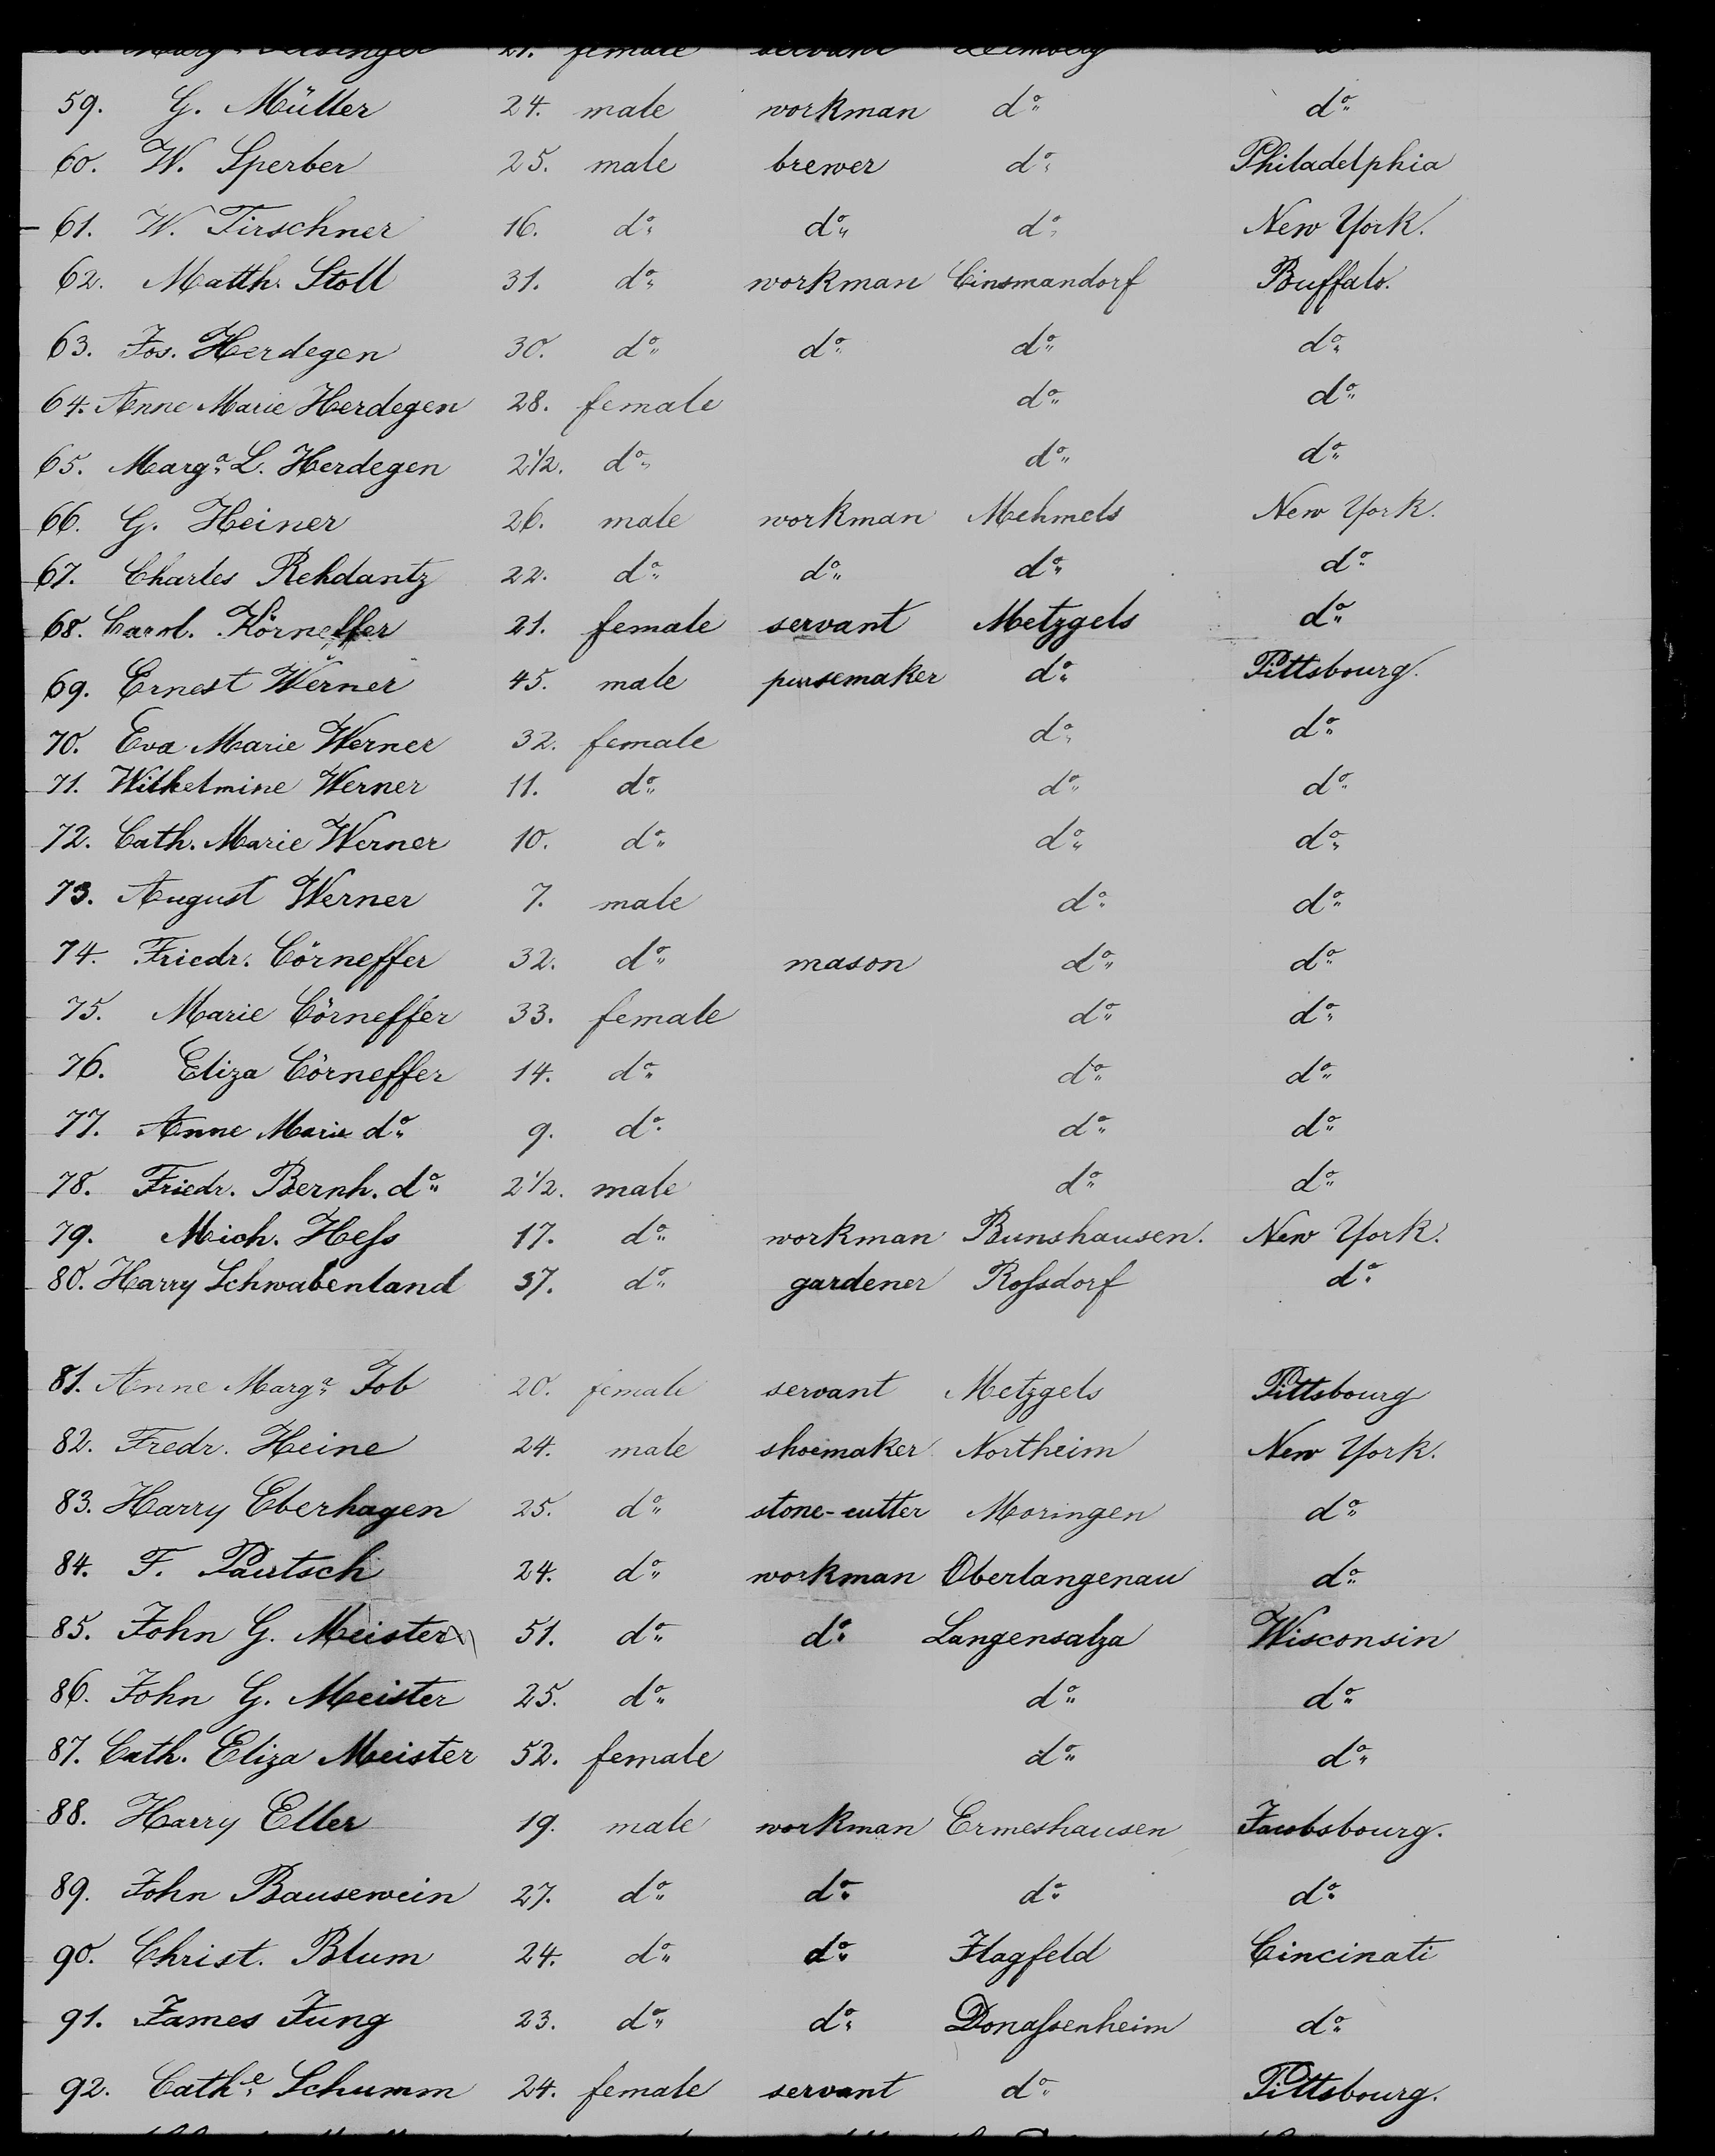 21. female servant
59. G. Müller 24. male workman do do
60. W. Sperber 25. male brewer do Philadelphia
61. W. Tirschner 16. do do do New York.
62. Matth. Stoll 31. do workman Cinsmandorf Buffalo.
63. Jos. Herdegen 30. do do do do
64. Anne Marie Herdegen 28. female do do
65. Marga L. Herdegen 2 1/2. do do do
66. G. Heiner 26. male workman Mehmels New York.
67. Charles Rehdantz 22. do do do do
68. Carol. Körneffer 21. female servant Metzgels do
69. Ernest Werner 45. male pursemaker do Pittsbourg.
70. Eva Marie Werner 32. female do do
71. Wilhelmine Werner 11. do do do
72. Cath. Marie Werner 10. do do do
73. August Werner 7. male do do
74. Friedr. Cörneffer 32. do mason do do
75. Marie Cörneffer 33. female do do
76. Eliza Cörneffer 14. do do do
77. Anne Marie do 9. do do do
78. Friedr. Bernh. do 2 1/2. male do do
79. Mich. Heſs 17. do workman Bunshausen. New York.
80. Harry Schwabenland 37. do gardener Roſsdorf do
81. Anne Marga Job 20. female servant Metzgels Pittsbourg
82. Fredr. Heine 24. male shoemaker Northeim New York.
83. Harry Eberhagen 25. do stone-cutter Moringen do
84. F. Pautsch 24. do workman Oberlangenau do
85. John G. Meister 51. do do Langensalza Wisconsin
86. John G. Meister 25. do do do
87. Cath. Eliza Meister 52. female do do
88. Harry Eller 19. male workman Ermeshausen Jacobsbourg.
89. John Bausewein 27. do do do do
90. Christ. Blum 24. do do Hagfeld Cincinati
91. James Jung 23. do do Donaſsenheim do
92. Cathe Schumm 24. female servant do Pittsbourg.